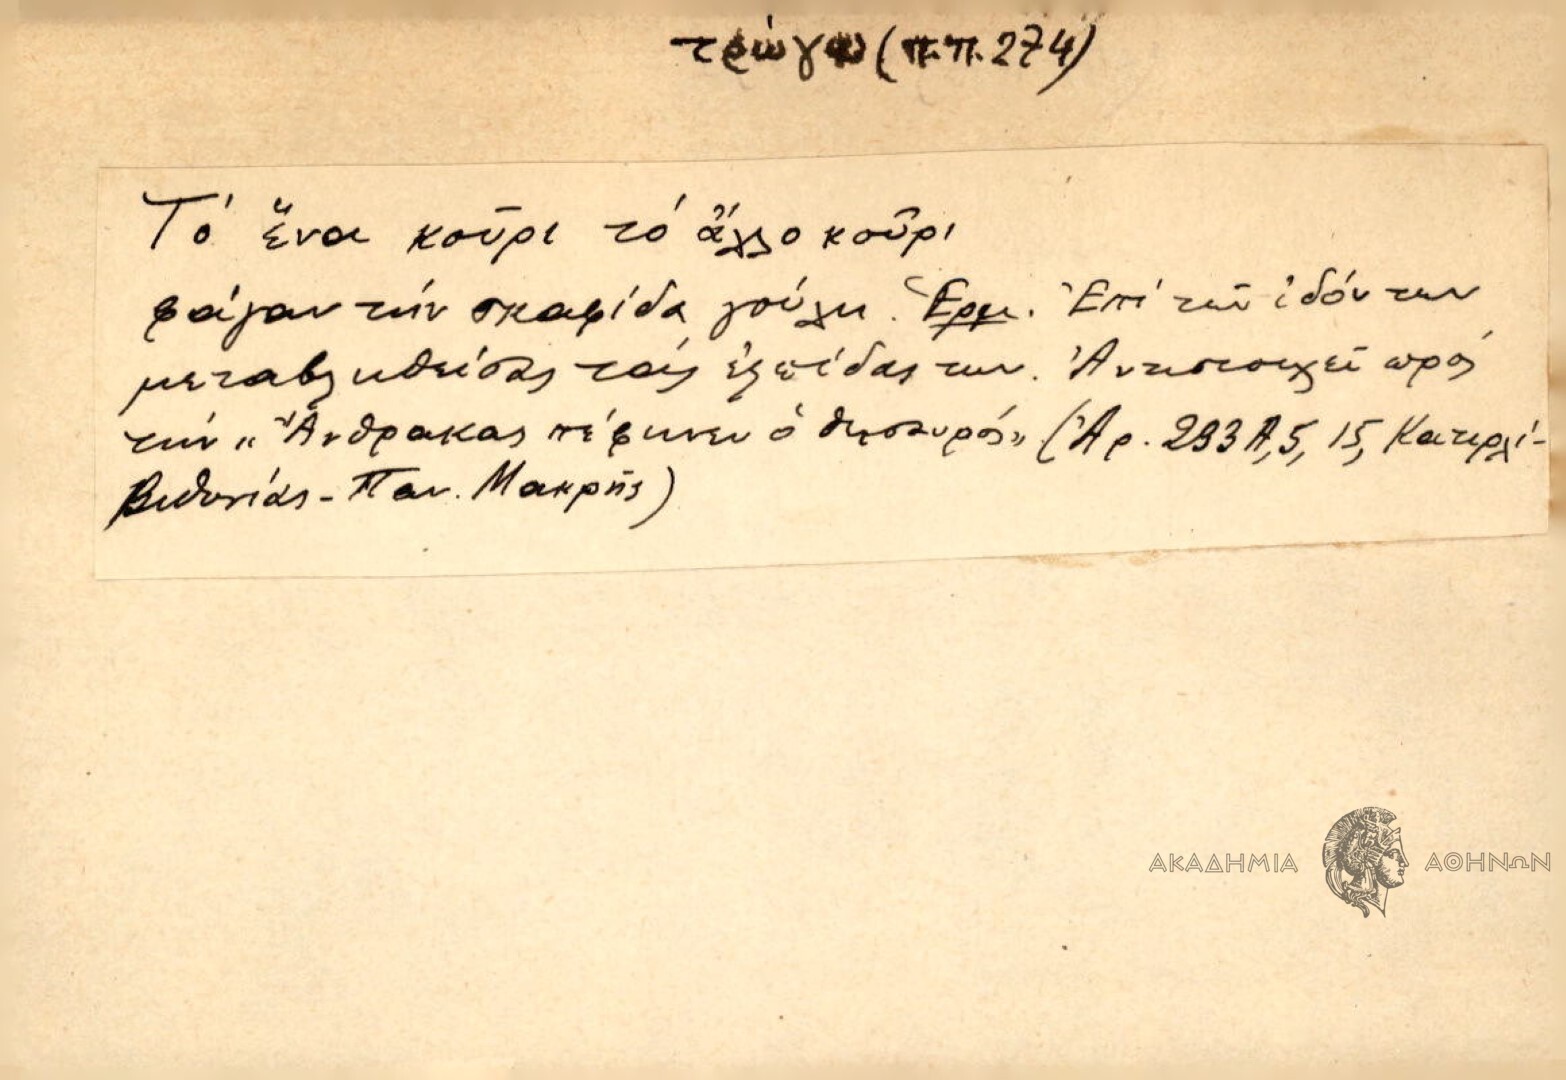 τρώγω (π.π. 274)
Τό ἕνα κοῦρι τό ἄλλο κοῦρι
φάγαν τήν σκαφίδα γούλη. Ἑρμ. Ἐπί τῶν ἰδόντων
μεταβληθείσας τάς ἐλπίδας των. Ἀντιστοιχεῖ πρός
τήν "Ἄνθρακας πέφηνεν ὁ θησαυρός" (Ἀρ. 293 Α, 5, 15, Κατιρλί-
Βιθυνίας - Παν. Μακρῆς)
ΑΚΑΔΗΜΙΑ ΑΘΗΝΩΝ